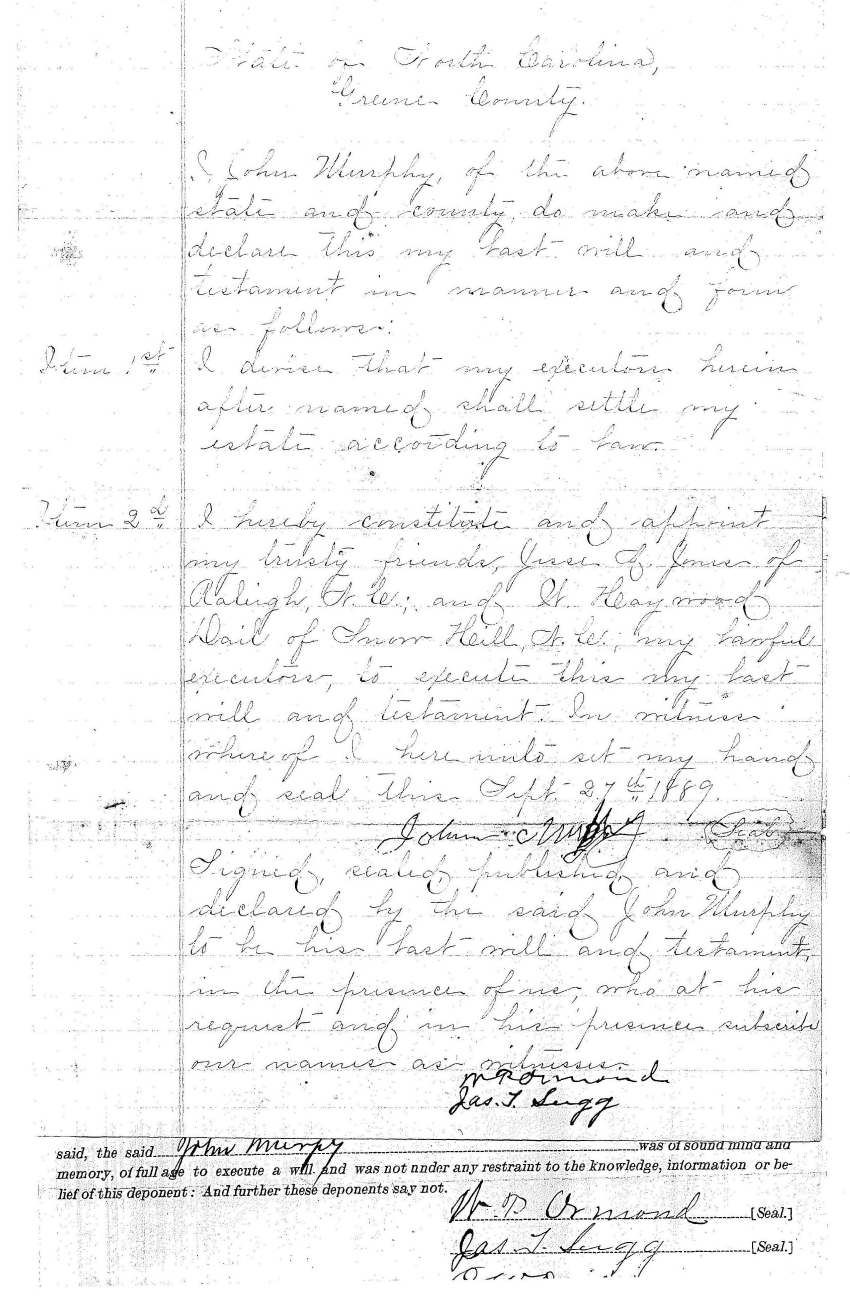 State of North Carolina,
Greene County.
I, John Murphy, of the above named
state and county, do make and
declare this my last will and
testament in manner and form
as follows:
Item 1st I devise that my executors herein
after named shall settle my
estate according to law.
Item 2d I hereby constitute and appoint
my trusty friends, Jesse A. Jones of
Raleigh, N. C.; and W. Haywood
Dail of Snow Hill, N. C., my lawful
executors, to execute this my last
will and testament. In witness
whereof I here unto set my hand
and seal this Sept. 27th 1889.
John Murphy Seal
Signed, sealed published and
declared by the said John Murphy
to be his last will and testament,
in the presence of us, who at his
request and in his presence subscribe
our names as witnesses.
W P Ormond
Jas. T. Sugg
said, the said John Murpy was of sound mind and
memory, of full age to execute a will, and was not under any restraint to the knowledge, information or be-
lief of this deponent: And further these deponents say not.
W. P Ormond [Seal.]
Jas T. Sugg [Seal.]